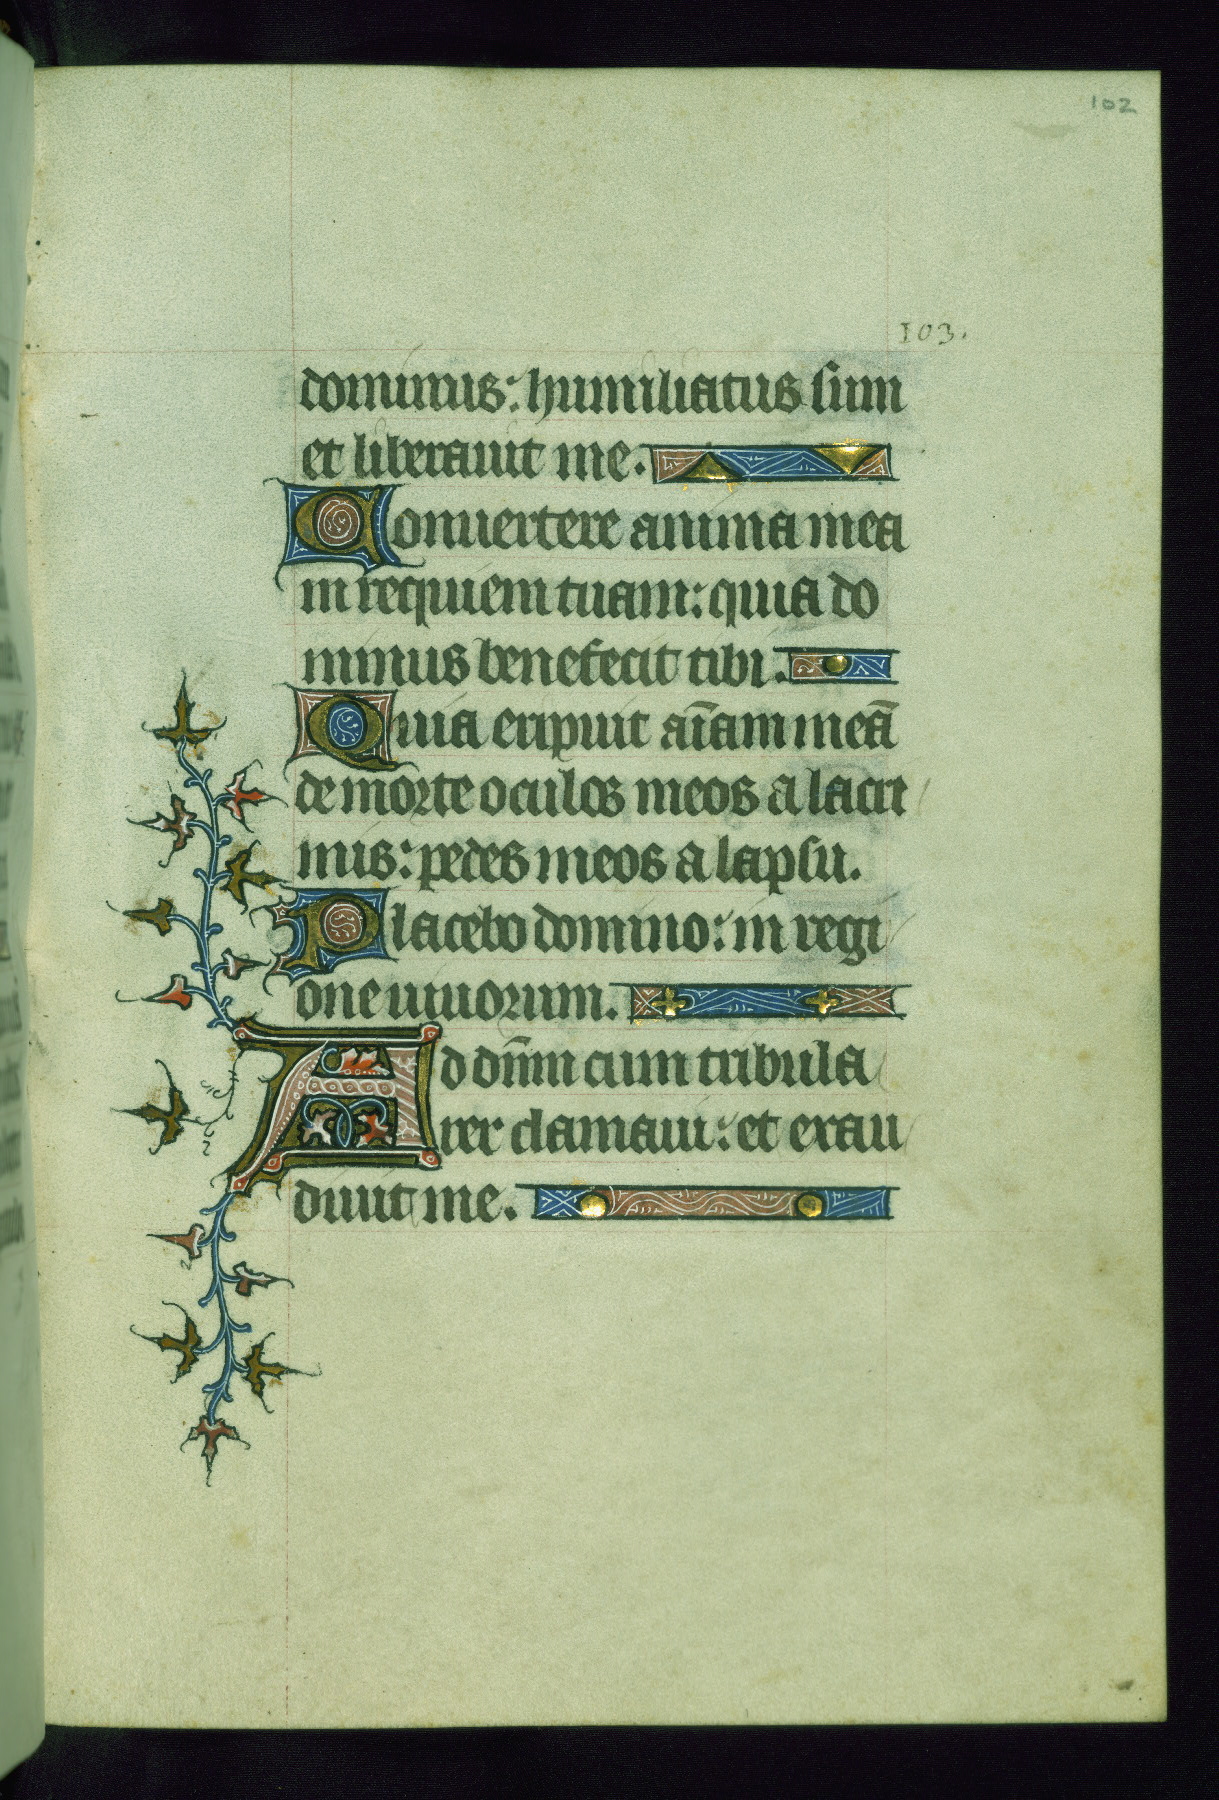 102
103.
dominus: humiliatus sum
et liberauit me.
Conuertere anima mea
in requiem tuam: quia do
minus benefecit tibi.
Quia eripuit aīam meā
de morte oculos meos a lacri
mis: pedes meos a lapsu.
Placebo domino: in regi
one uiuorum.
Ad dn̄m cum tribula
rer clamaui: et exau
diuit me.